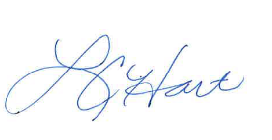 LG Hart